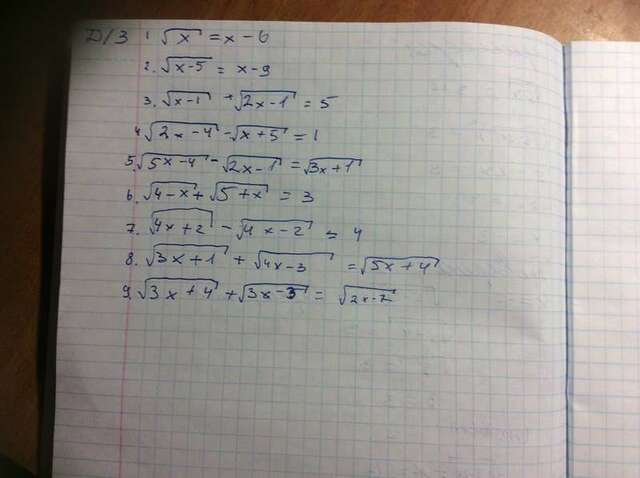 Д/З 1. √x = x - 6
2. √x-5 = x - 9
3. √x-1 + √2x-1 = 5
4. √2x-4 - √x+5 = 1
5. √5x-4 - √2x-1 = √3x+1
6. √4-x + √5+x = 3
7. √4x+2 - √4x-2 = 4
8. √3x+1 + √4x-3 = √5x+4
9. √3x+4 + √3x-3 = √2x-7